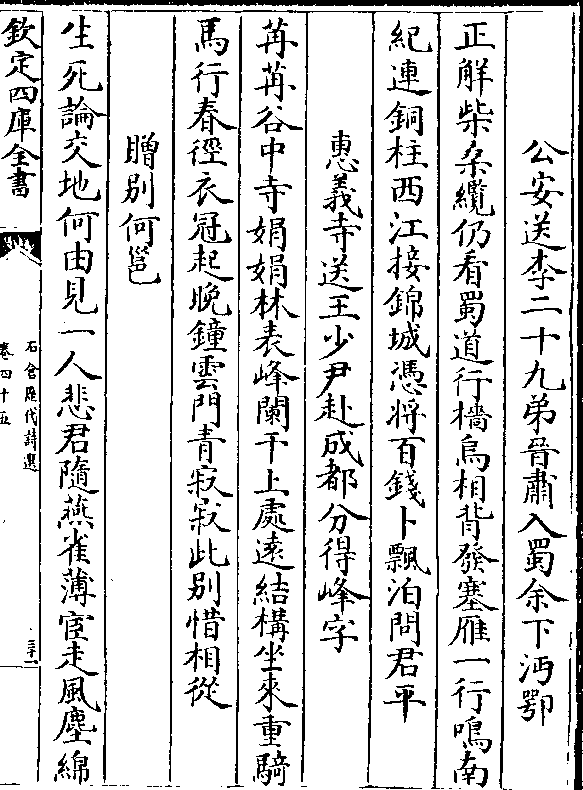 公安送李二十九弟晉肅入蜀余下沔鄂
正解柴桑纜仍看蜀道行檣烏相背發塞雁一行鳴南
紀連銅柱西江接錦城憑將百錢卜飄泊問君平
惠義寺送王少尹赴成都分得峰字
苒苒谷中寺娟娟林表峰闌干上處遠結構坐來重騎
馬行春徑衣冠起晚鐘雲門青寂寂此別惜相從
贈別何邕
生死論交地何由見一人悲君隨燕雀薄宦走風塵綿
欽定四庫全書
石倉歴代詩選
卷四十五